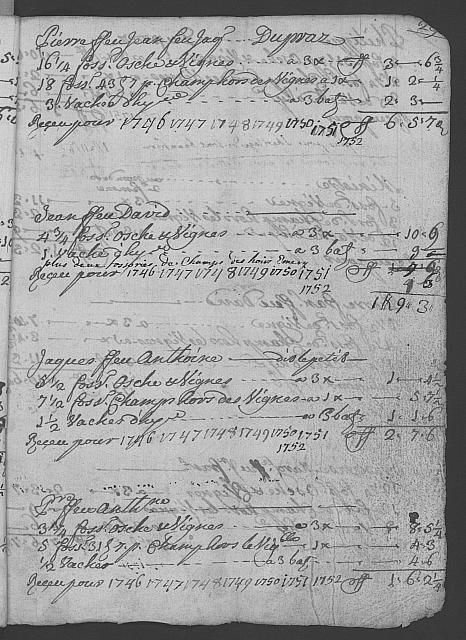 Pierre ffeu Jean feu Jaq Dupraz
16 1/4 foss. Osche & Vignes a 3 x ff 3 6 3/4
18 foss. 43 & 7 p. Champ hors des Vignes a 1 x 1 2 1/4
3 Vaches d'hy a 3 baf 2 3
Reçeu pour 1746 1747 1748 1749 1750 1751 1752 ff 6 5 7
Jean ffeu David
4 3/4 foss. Osche & Vignes a 3 x 10 9
1 Vache d'hy a 3 baf 9
plus deux fossories de Champs des hoirs Emery
Reçeu pour 1746 1747 1748 1749 1750 1751 1752 ff 1 9 9
9 3
1 R 9 3
Jaques ffeu Anthoine dit le petit
5 1/2 foss. Osche & Vignes a 3 x 1 4 1/2
7 1/2 foss. Champ hors des Vignes a 1 x 5 7 1/2
1 1/2 Vaches d'hy a 3 baf 1 1 6
Reçeu pour 1746 1747 1748 1749 1750 1751 1752 ff 2 7 6
ffeu Anthoine
3 1/4 foss. Osche & Vignes a 3 x 8 5 1/4
5 foss. 31 & 7 p. Champ hors le Vig 1 x 4 3
1/2 Vaches a 3 baf 4 6
Reçeu pour 1746 1747 1748 1749 1750 1751 1752 ff 1 6 2 1/4